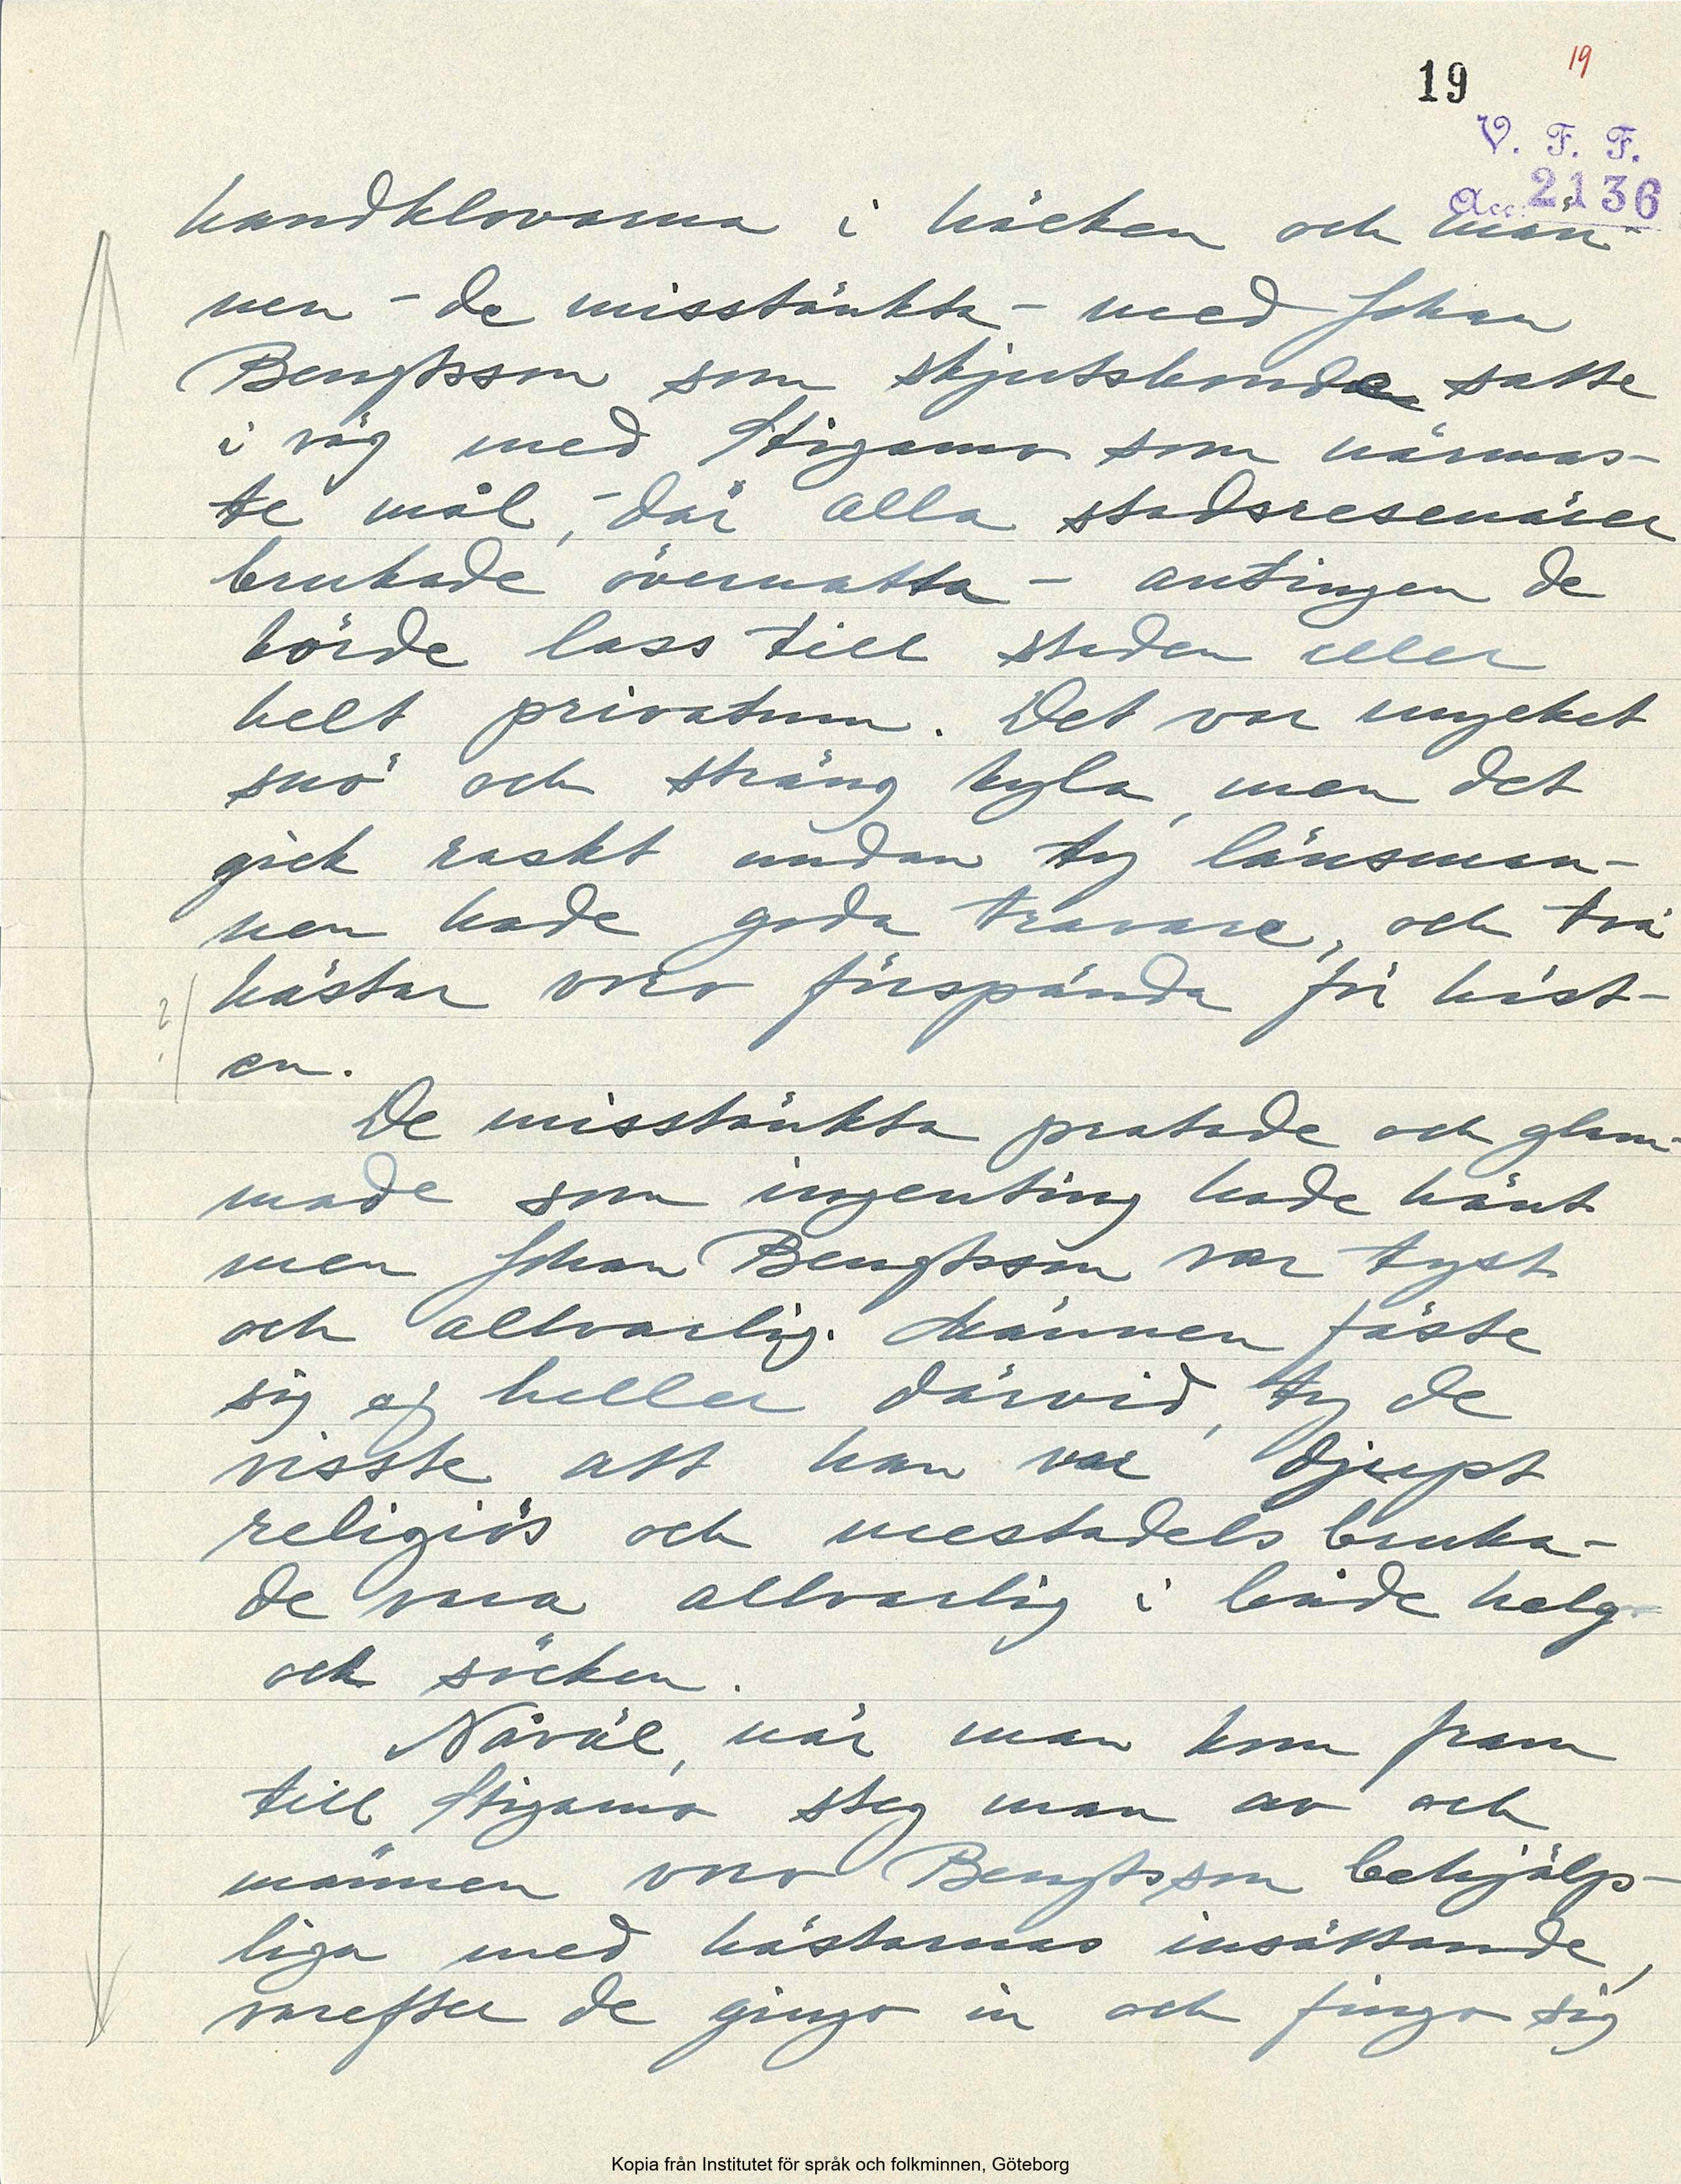 19 19
V. F. F.
Acc. 2136
handklovarna i häcken och män-
nen - de misstänkta - med Johan
Bengtsson som skjutsbonde satte
i väg med Stigamo som närmas-
te mål, - där alla stadsresenärer
brukade övernatta - antingen de
körde lass till staden eller
helt privatum. Det var mycket
snö och sträng kyla, men det
gick raskt undan ty länsman-
nen hade goda travare, och två
hästar voro förspända för häst-
en.
?
De misstänkta pratade och glam-
made som ingenting hade hänt
men Johan Bengtsson var tyst
och allvarlig. Männen fäste
sig ej heller därvid, ty de
visste att han var djupt
religiös och mestadels bruka-
de vara allvarlig i både helg
och söcken.
Nåväl, när man kom fram
till Stigamo steg man av och
männen voro Bengtsson behjälp-
liga med hästarnas insättande,
varefter de gingo in och fingo sig
Kopia från Institutet för språk och folkminnen, Göteborg